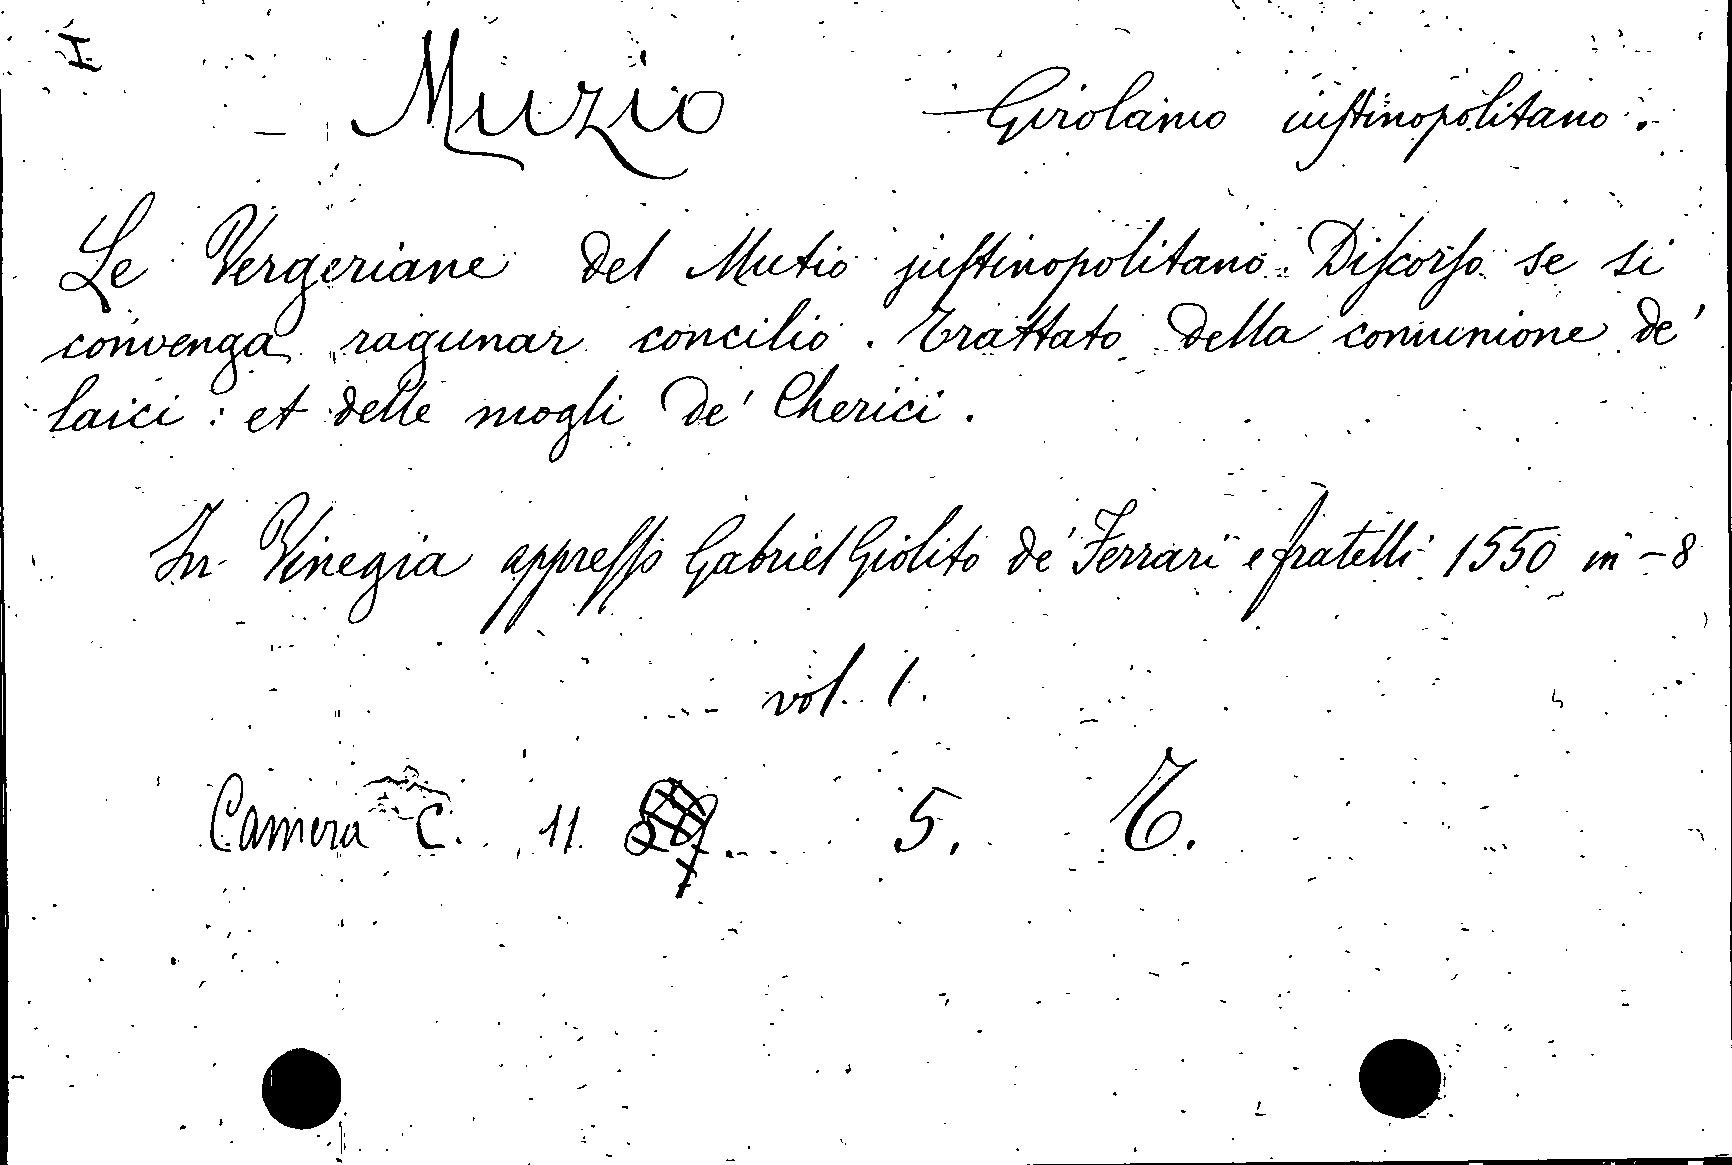 I
Muzio Girolamo iuſtinopolitano.
Le Vergeriane del Mutio juſtinopolitano. Diſcorſo se si
convenga ragunar concilio. Trattato della comunione de'
laici: et delle mogli de' Cherici.
In Vinegia appreſſo Gabriel Giolito de' Ferrari e fratelli 1550 in-8
vol. 1.
Camera C. 11. 5. T.